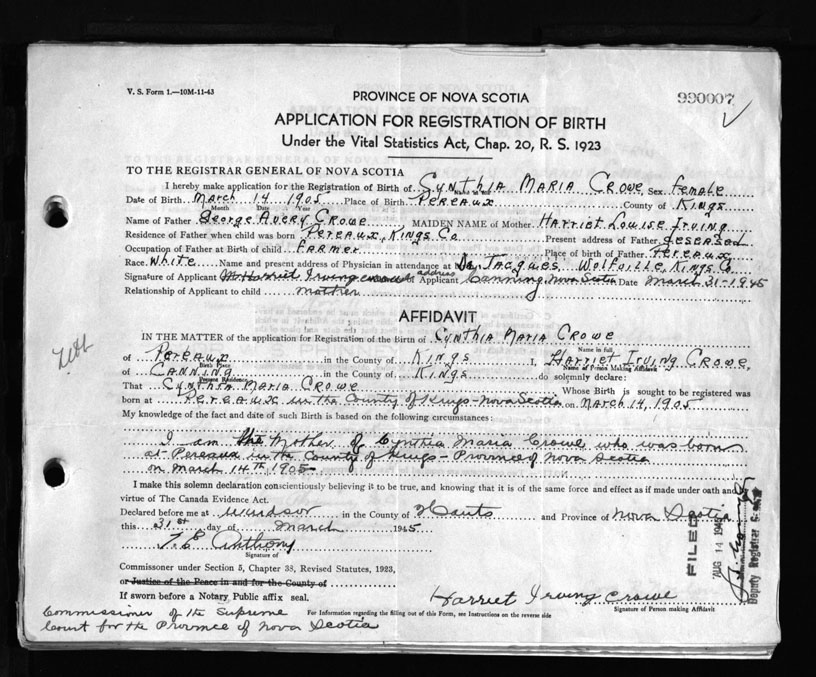 V. S. Form 1.—10M-11-43
PROVINCE OF NOVA SCOTIA
990007
APPLICATION FOR REGISTRATION OF BIRTH
Under the Vital Statistics Act, Chap. 20, R. S. 1923
TO THE REGISTRAR GENERAL OF NOVA SCOTIA
I hereby make application for the Registration of Birth of Cynthia Maria Crowe Sex female
Date of Birth March 14 1905 Place of Birth Pereaux County of Kings
Month Date Year
Name of Father George Avery Crowe MAIDEN NAME of Mother Harriet Louise Irving
Residence of Father when child was born Pereaux, Kings Co Present address of Father deseased
Occupation of Father at Birth of child farmer Place of birth of Father Pereaux
Race White Name and present address of Physician in attendance at Dr. Jacques, Wolfville, Kings Co
Signature of Applicant Harriet Irving Crowe address of Applicant Canning Nova Scotia Date March 31-1945
Relationship of Applicant to child mother
AFFIDAVIT
IN THE MATTER of the application for Registration of the Birth of Cynthia Maria Crowe
Name in full
of Pereaux in the County of Kings I, Harriet Irving Crowe,
Birth Place Name of Person Making Affidavit
of Canning in the County of Kings do solemnly declare:
Present Residence
That Cynthia Maria Crowe Whose Birth is sought to be registered was
born at Pereaux in the County of Kings-Nova Scotia on March 14, 1905
My knowledge of the fact and date of such Birth is based on the following circumstances:
I am the Mother of Cynthia Maria Crowe who was born
at Pereaux in the County of Kings - Province of Nova Scotia
on March 14th 1905
I make this solemn declaration conscientiously believing it to be true, and knowing that it is of the same force and effect as if made under oath and
virtue of The Canada Evidence Act.
Declared before me at Windsor in the County of Hants and Province of Nova Scotia
this 31st day of March 1945
T. E. Anthony
Signature of
Commissioner under Section 5, Chapter 38, Revised Statutes, 1923,
or Justice of the Peace in and for the County of
If sworn before a Notary Public affix seal.
Harriet Irving Crowe
Signature of Person making Affidavit
Commissioner of the Supreme
Court for the Province of Nova Scotia
For Information regarding the filling out of this Form, see Instructions on the reverse side
FILED
AUG 14 1945
Deputy Registrar